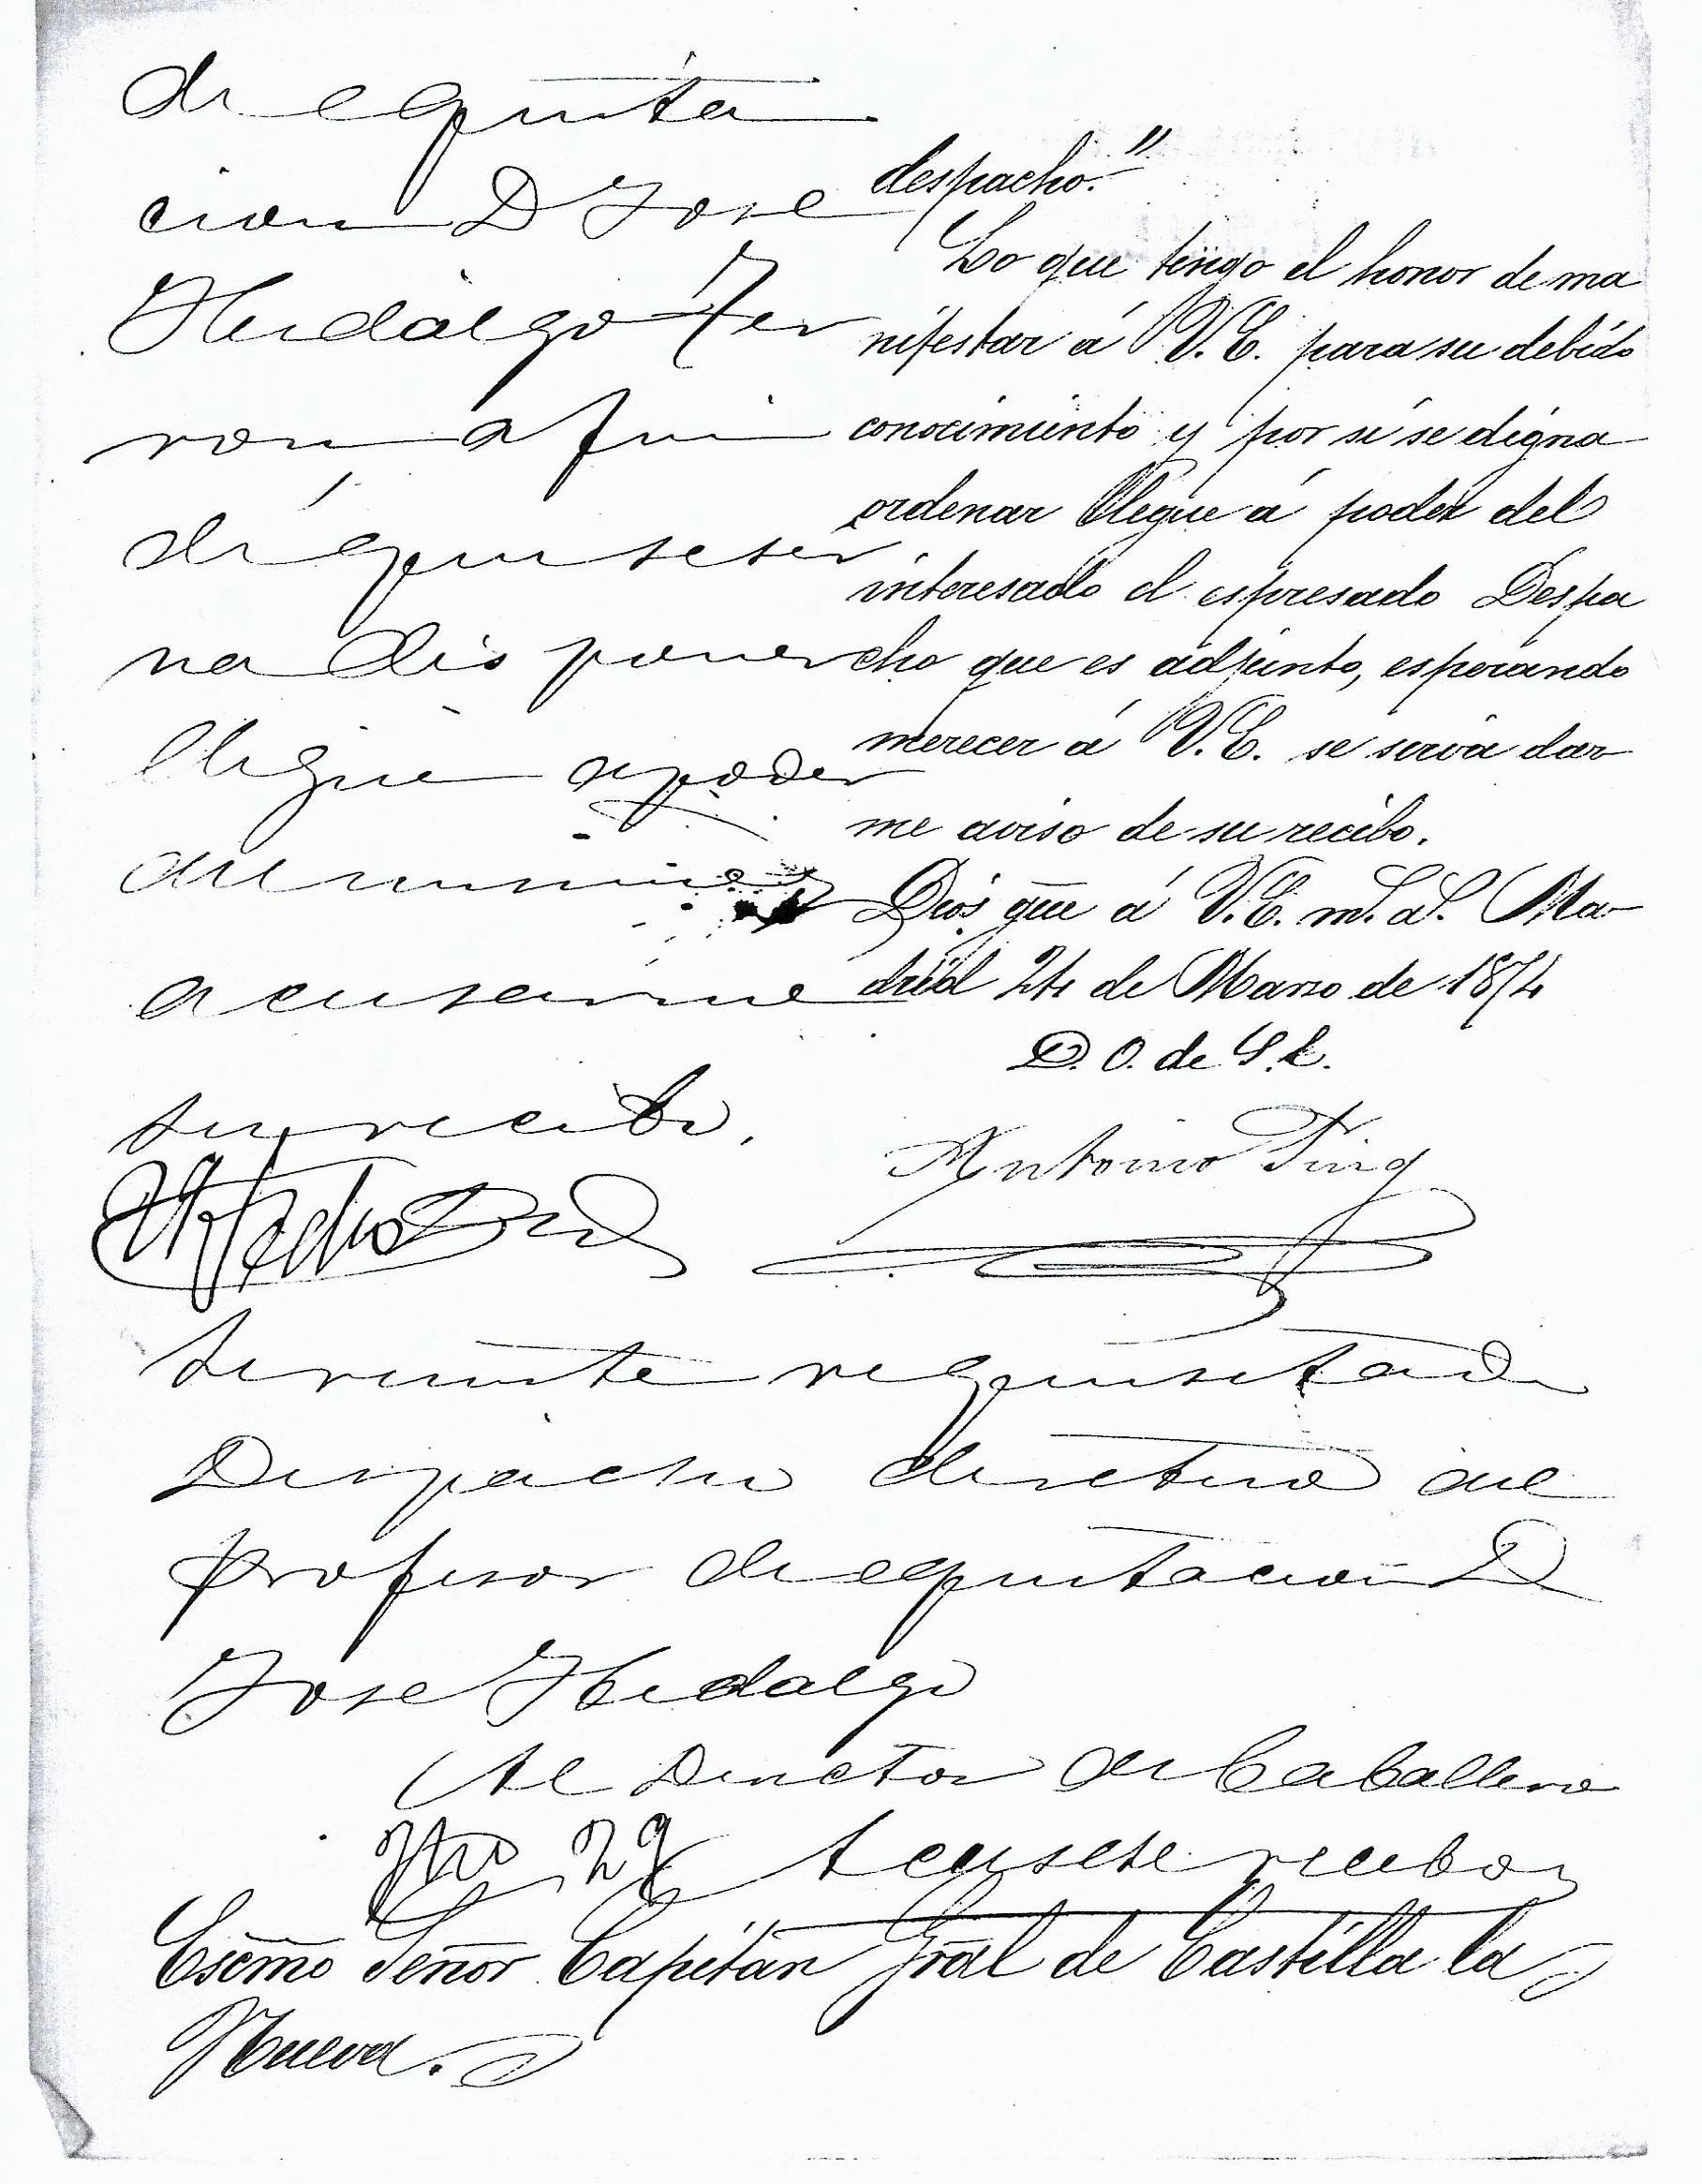 de equita
cion D Jose
Hidalgo Ter
ron a fin
de que se sir
va disponer
llegue a poder
del mismo y
acusarme
su recibo.
despacho."
Lo que tengo el honor de ma
nifestar á V.E. para su debido
conocimiento y por si se digna
ordenar llegue á poder del
interesado el espresado Despa
cho que es adjunto, esperando
merecer á V.E. se sirva dar
me aviso de su recibo.
Dios gue á V.E. m.s a.s. Ma-
drid 24 de Marzo de 1874
D. O. de S.E.
Antonio Puig
Se remite requisitado
Despacho de
profesor de equitacion D
Jose Hidalgo
Al Director de Caballeria
29 Acusese recibo
Escmo Señor Capitán Gral de Castilla la
Nueva.